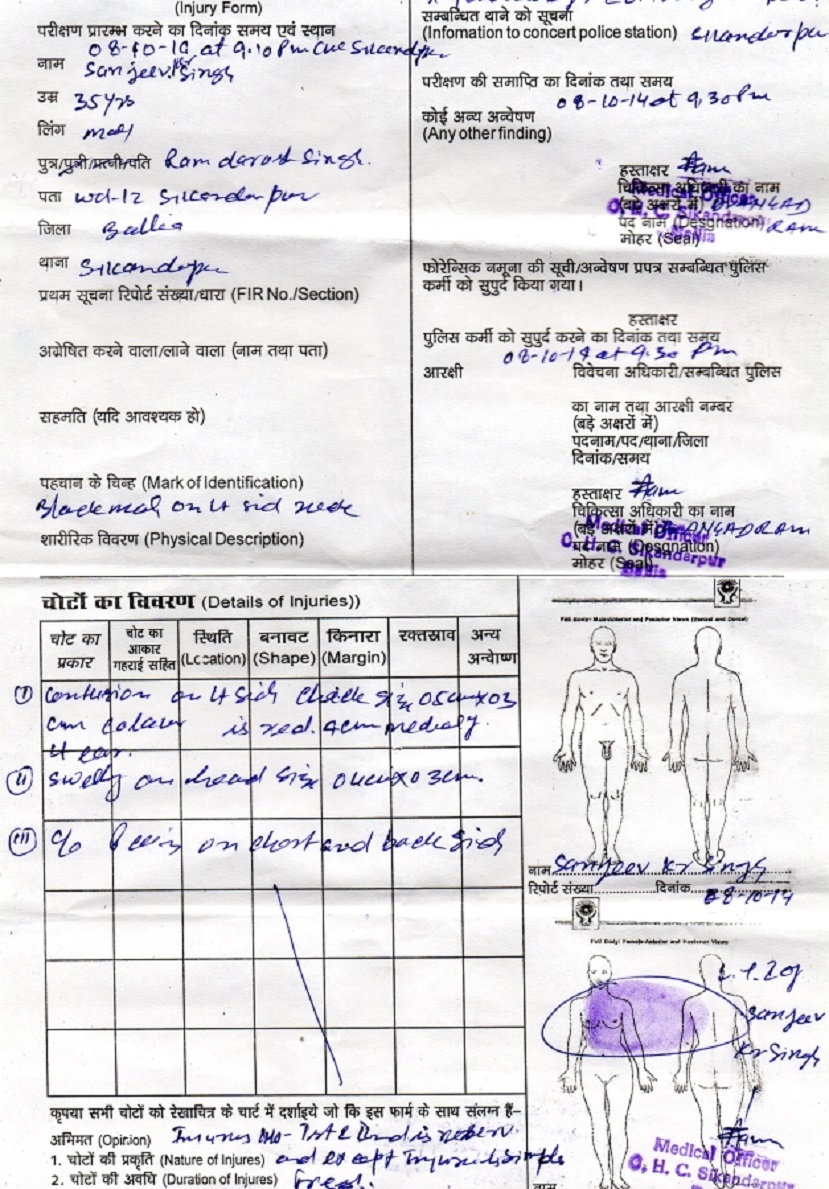 (Injury Form)
परीक्षण प्रारम्भ करने का दिनांक समय एवं स्थान
08-10-14 at 9:10 Pm CHC Sikandpur
नाम Sanjeev Kr Singh
उम्र 35 Yrs
लिंग
पुत्र/पुत्री/पत्नी/पति Ram Singh.
पता wd-12 Sikandarpur
जिला Ballia
थाना Sikandapu
प्रथम सूचना रिपोर्ट संख्या/धारा (FIR No./Section)
अग्रेषित करने वाला/लाने वाला (नाम तथा पता)
सहमति (यदि आवश्यक हो)
पहचान के चिन्ह (Mark of Identification)
Black on Lt sid neck
शारीरिक विवरण (Physical Description)
सम्बन्धित थाने को सूचना
(Infomation to concert police station) Sikandarpur
परीक्षण की समाप्ति का दिनांक तथा समय
08-10-14 at 9.30 Pm
कोई अन्य अन्वेषण
(Any other finding)
हस्ताक्षर
चिकित्सा अधिकारी का नाम
(बड़े अक्षरों में) Dr ANGAD
पद नाम (Designation) RAM
मोहर (Seal)
Medical Officer
C. H. C. Sikandarpur
Ballia
फोरेन्सिक नमूना की सूची/अन्वेषण प्रपत्र सम्बन्धित पुलिस
कर्मी को सुपुर्द किया गया।
हस्ताक्षर
पुलिस कर्मी को सुपुर्द करने का दिनांक तथा समय
08-10-14 at 9.30 Pm
आरक्षी विवेचना अधिकारी/सम्बन्धित पुलिस
का नाम तथा आरक्षी नम्बर
(बड़े अक्षरों में)
पदनाम/पद/थाना/जिला
दिनांक/समय
हस्ताक्षर
चिकित्सा अधिकारी का नाम
(बड़े अक्षरों में) Dr ANGAD RAM
पद नाम (Desgnation)
मोहर (Seal)
Medical Officer
C. H. C. Sikandarpur
Ballia
चोटों का विवरण (Details of Injuries))
चोट का प्रकार
चोट का आकार गहराई सहित
स्थिति (Location)
बनावट (Shape)
किनारा (Margin)
रक्तस्राव
अन्य अन्वेाष्ण
(I) Contusion on Lt Sid Cheek Siz 05cm x 03
cm colour is red. 4cm medialy
Lt ear.
(II) Swelly on head Size 04cm x 03cm.
(III) C/o Pain on chest and back Sid
Full Body: Male/Anterior and Posterior Views (Ventral and Dorsal)
नाम Sanjeev Kr Singh
रिपोर्ट संख्या दिनांक 08-10-14
Full Body: Female-Anterior and Posterior Views
L.T.I of
Sanjeev
Kr Singh
कृपया सभी चोटों को रेखाचित्र के चार्ट में दर्शाइये जो कि इस फार्म के साथ संलग्न हैं–
अभिमत (Opinion) Injuries No-
1. चोटों की प्रकृति (Nature of Injures) and except Injured is simple
2. चोटों की अवधि (Duration of Injures) Fresh.
Medical Officer
C. H. C. Sikandarpur
नाम